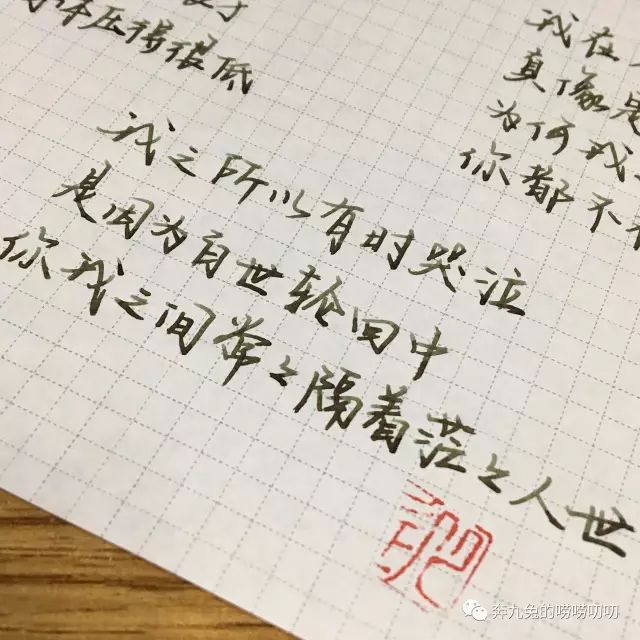 压得很低
我之所以有时哭泣
是因为百世轮回中
你我之间常々隔着茫々人世
我在
真像是
为何我
你都不
奔九兔的唠唠叨叨